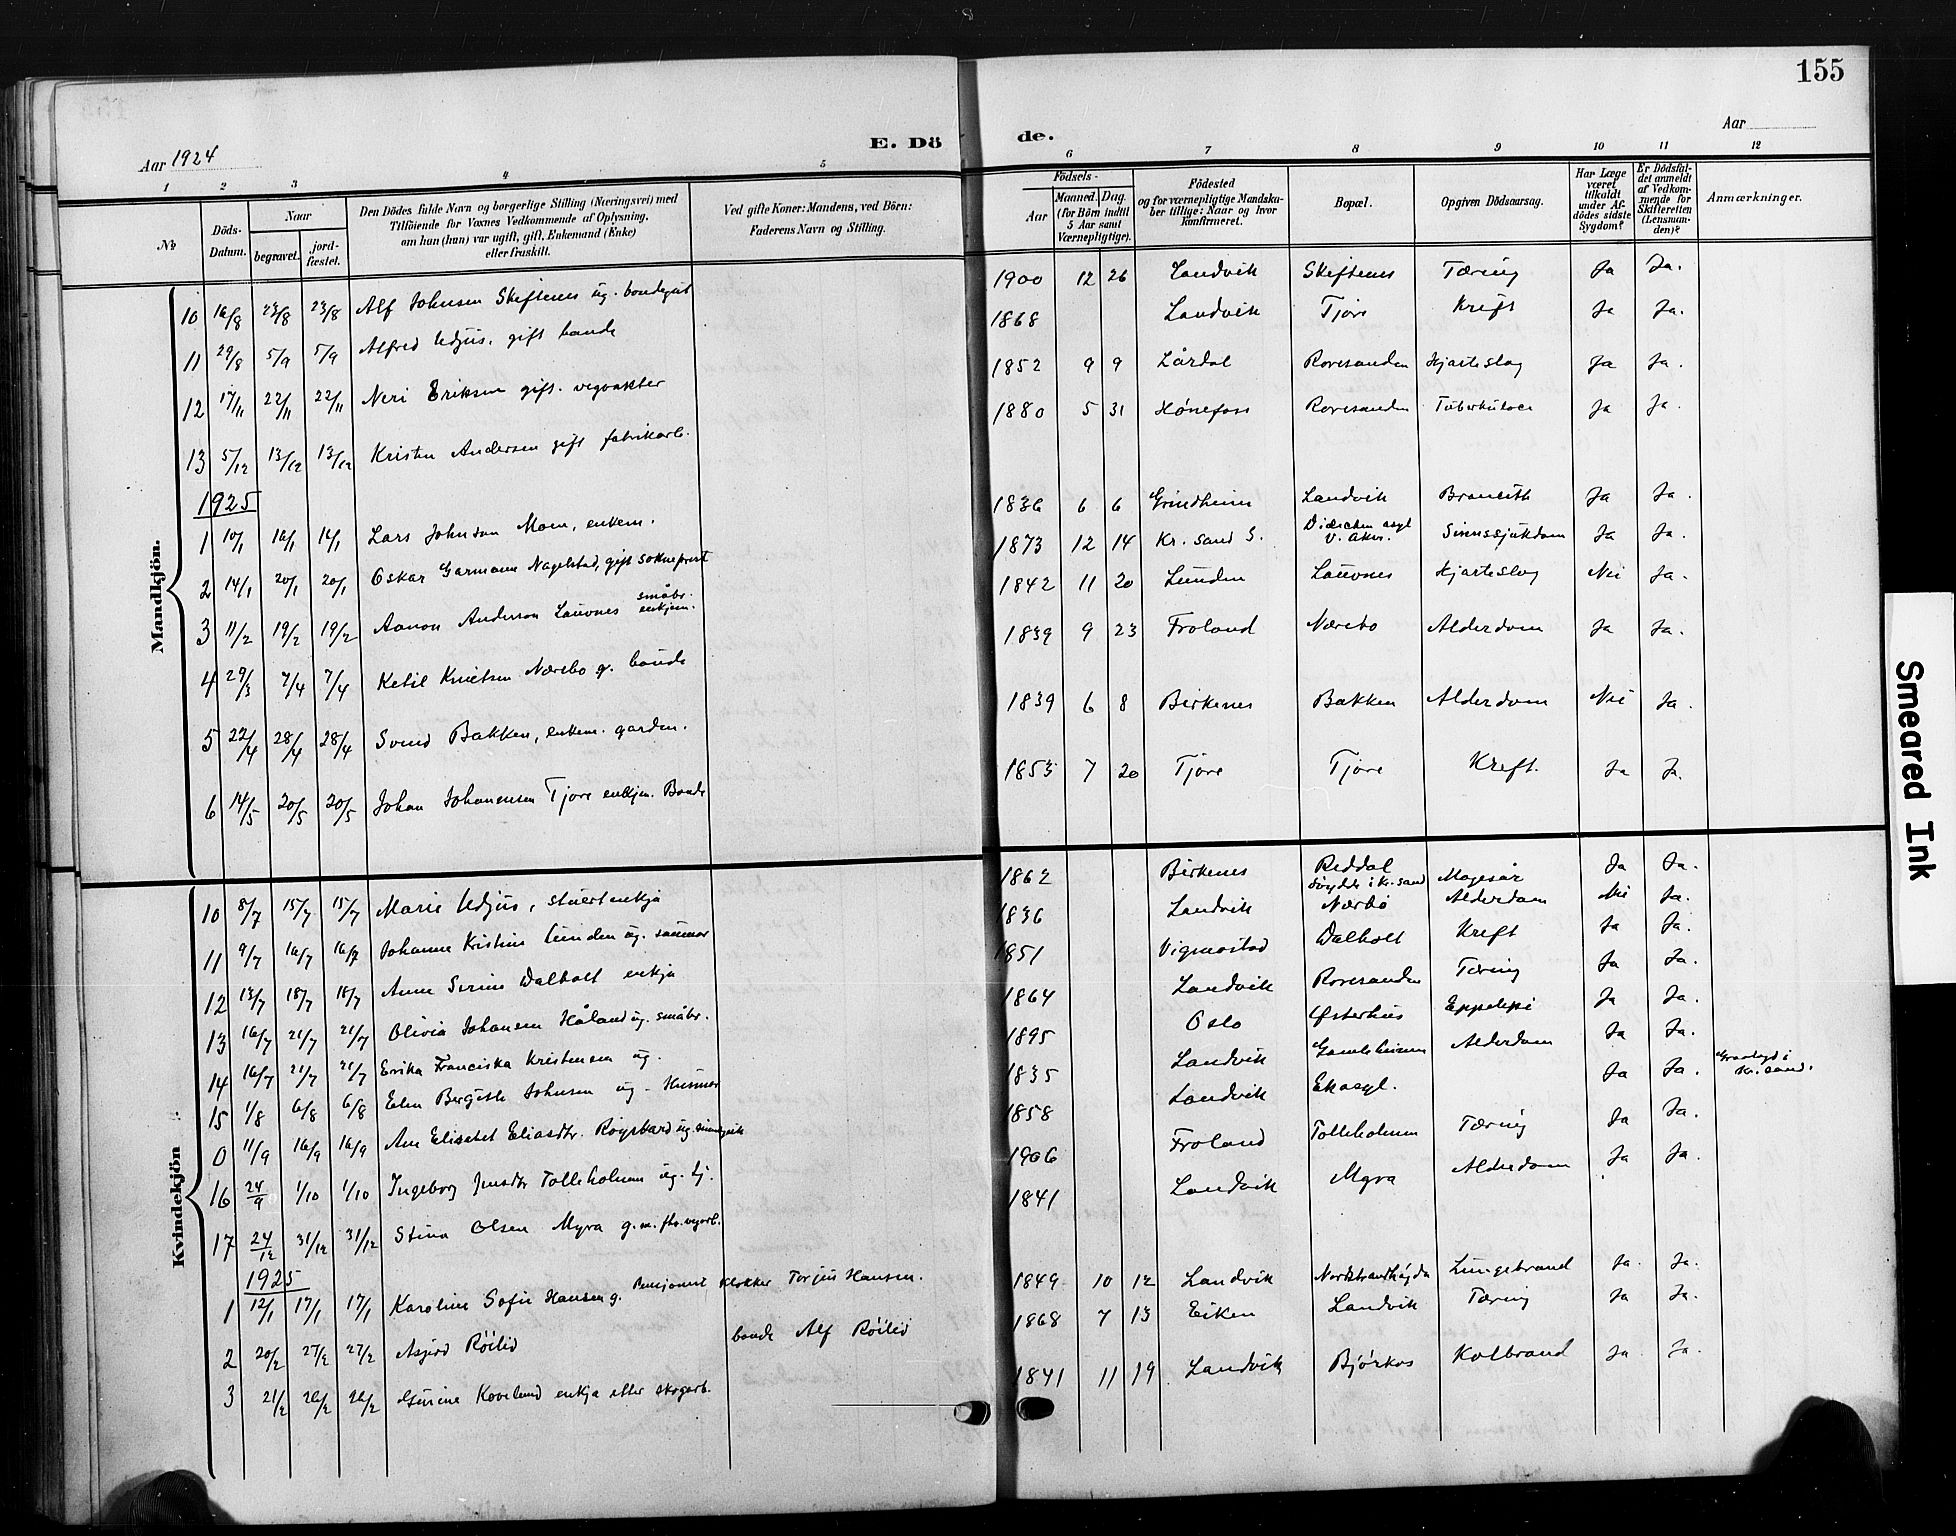 155
E. Döde.
Aar 1924
Aar
1 2 3 4 5 6 7 8 9 10 11 12
No
Döds-Datum.
Naar
begravet.
jord-fæstet.
Den Dödes fulde Navn og borgerlige Stilling (Næringsvei) med
Tilföiende for Voxnes Vedkommende af Oplysning,
om han (hun) var ugift, gift, Enkemand (Enke)
eller fraskilt.
Ved gifte Koner: Mandens, ved Börn:
Faderens Navn og Stilling.
Födsels-
Aar
Maaned. Dag.
(for Börn indtil
5 Aar samt
Værnepligtige).
Födested
og for værnepligtige Mandska-
ber tillige: Naar og hvor
konfirmeret.
Bopæl.
Opgiven Dödsaarsag.
Har Læge
været
tilkaldt
under Af-
dödes sidste
Sygdom?
Er Dödsfal-
det anmeldt
af Vedkom-
mende for
Skifteretten
(Lensman-
den)?
Anmærkninger.
Mandkjön.
10 16/8 23/8 23/8 Alf Johnsen Skiftenes ug. bondegut 1900 12 26 Landvik Skiftenes Tæring Ja Ja.
11 29/8 5/9 5/9 Alfred Udjus, gift bonde 1868 Landvik Tjore Kreft Ja Ja.
12 17/11 22/11 22/11 Neri Eriksen gift. vegvakter 1852 9 9 Lårdal Roresanden Hjarteslag Ja Ja.
13 5/12 13/12 13/12 Kristen Andersen gift fabrikarb. 1880 5 31 Hønefoss Roresanden Tuberkulose Ja Ja.
1925
1 10/1 16/1 16/1 Lars Johnson Moen, enkem. 1836 6 6 Grindheim Landvik Bronkitt Ja Ja.
2 14/1 20/1 20/1 Oskar Garmann Nagelstad, gift sokneprest 1873 12 14 Kr. sand S. asyl v. Sinnssjukdom Ja Ja.
3 11/2 19/2 19/2 Aanon Anderson Lauvnes småbr. enkjem. 1842 11 20 Lunden Lauvnes Hjarteslag Nei Ja.
4 29/3 7/4 7/4 Ketil Knutsen Nærebo g. bonde 1839 9 23 Froland Nærebo Alderdom Ja Ja.
5 22/4 28/4 28/4 Svend Bakken, enkem. garden. 1839 6 8 Birkenes Bakken Alderdom Nei Ja.
6 14/5 20/5 20/5 Johan Johannesen Tjore enkjem. Bonde 1853 7 20 Tjore Tjore Kreft. Ja Ja.
Kvindekjön
10 8/7 15/7 15/7 Marie Udjus, stuertenkja 1862 Birkenes Reddal døydde i Kr. sand Magesår Ja Ja.
11 9/7 16/7 16/7 Johanne Kristine Lunden ug. 1836 Landvik Nærbø Alderdom Nei Ja.
12 13/7 18/7 18/7 Anne Serine Dalholt enkja 1851 Vigmostad Dalholt Kreft Ja Ja.
13 16/7 21/7 21/7 Olivia Johansen Håland ug. småbr. 1864 Landvik Roresanden Tæring Ja Ja.
14 16/7 21/7 21/7 Erika Franciska Kristensen ug. 1895 Oslo Østerhus Eppelepsi Ja Ja.
15 1/8 6/8 6/8 Elen Bergitte Johnsen ug. Husmor 1835 Landvik Alderdom Ja Ja.
0 11/9 16/9 16/9 Ane Elisabet Eliasdtr. ug. 1858 Landvik Ekasyl. Ja Ja. Gravlagd i Kr. sand.
16 24/9 1/10 1/10 Ingeborg Jensdtr Tolleholmen ug. tj. 1906 Froland Tolleholmen Tæring Ja Ja.
17 24/12 31/12 31/12 Stina Olsen Myra g. m. vegarb. 1841 Landvik Myra Alderdom Ja Ja.
1925
1 12/1 17/1 17/1 Karoline Sofie Hansen g. Pensjonert Klokker Torjus Hansen. 1849 10 12 Landvik Lungebrand Ja. Ja.
2 20/2 27/2 27/2 Asjerd Röilid bonde Alf Röilid 1868 7 13 Eiken Landvik Tæring Ja Ja.
3 21/2 26/2 26/2 Gurine Kovelund enkja etter skogarb. 1841 11 19 Landvik Bjórkos Kolbrand Ja. Ja.
Smeared Ink